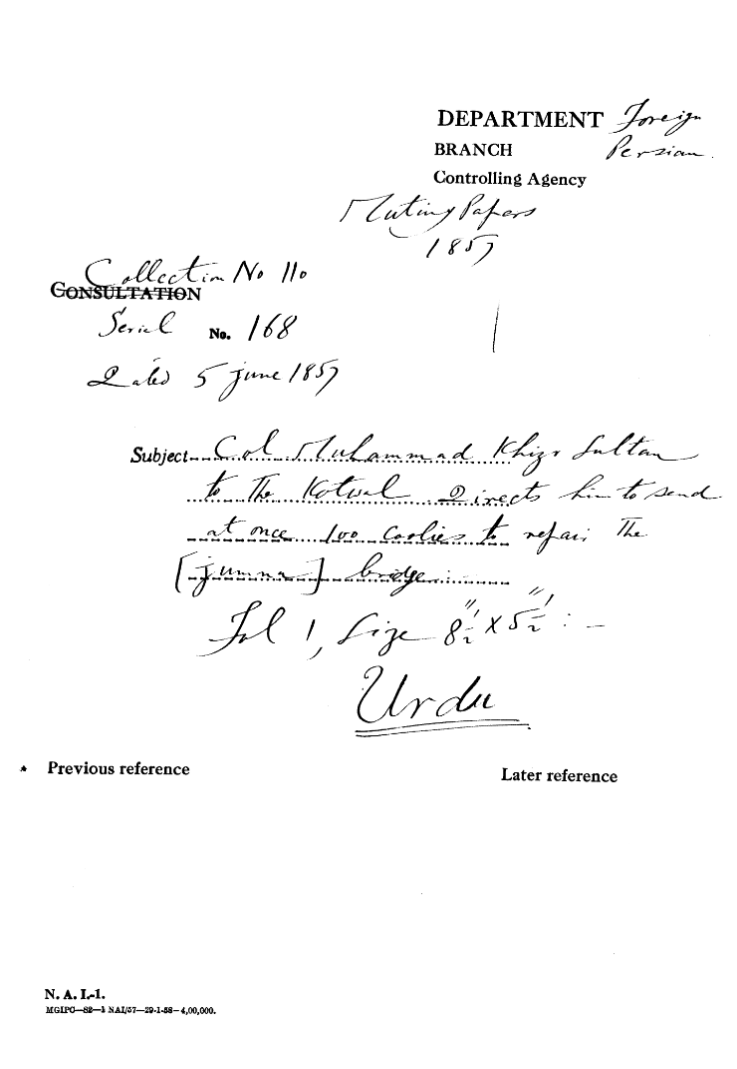 DEPARTMENT Foreign
BRANCH Persian.
Controlling Agency
Mutiny Papers
1857
Collection No 110
CONSULTATION
Serial No. 168
Dated 5 June 1857
Subject Col Muhammad Khizr Sultan
to The Kotwal Directs him to send
at once 100 coolies to repair The
[Jumna] bridge
Fol 1, Size 8½" x 5½" : —
Urdu
* Previous reference
Later reference
N. A. I.-1.
MGIPC—S2—1 NAI/57—29-1-58—4,00,000.